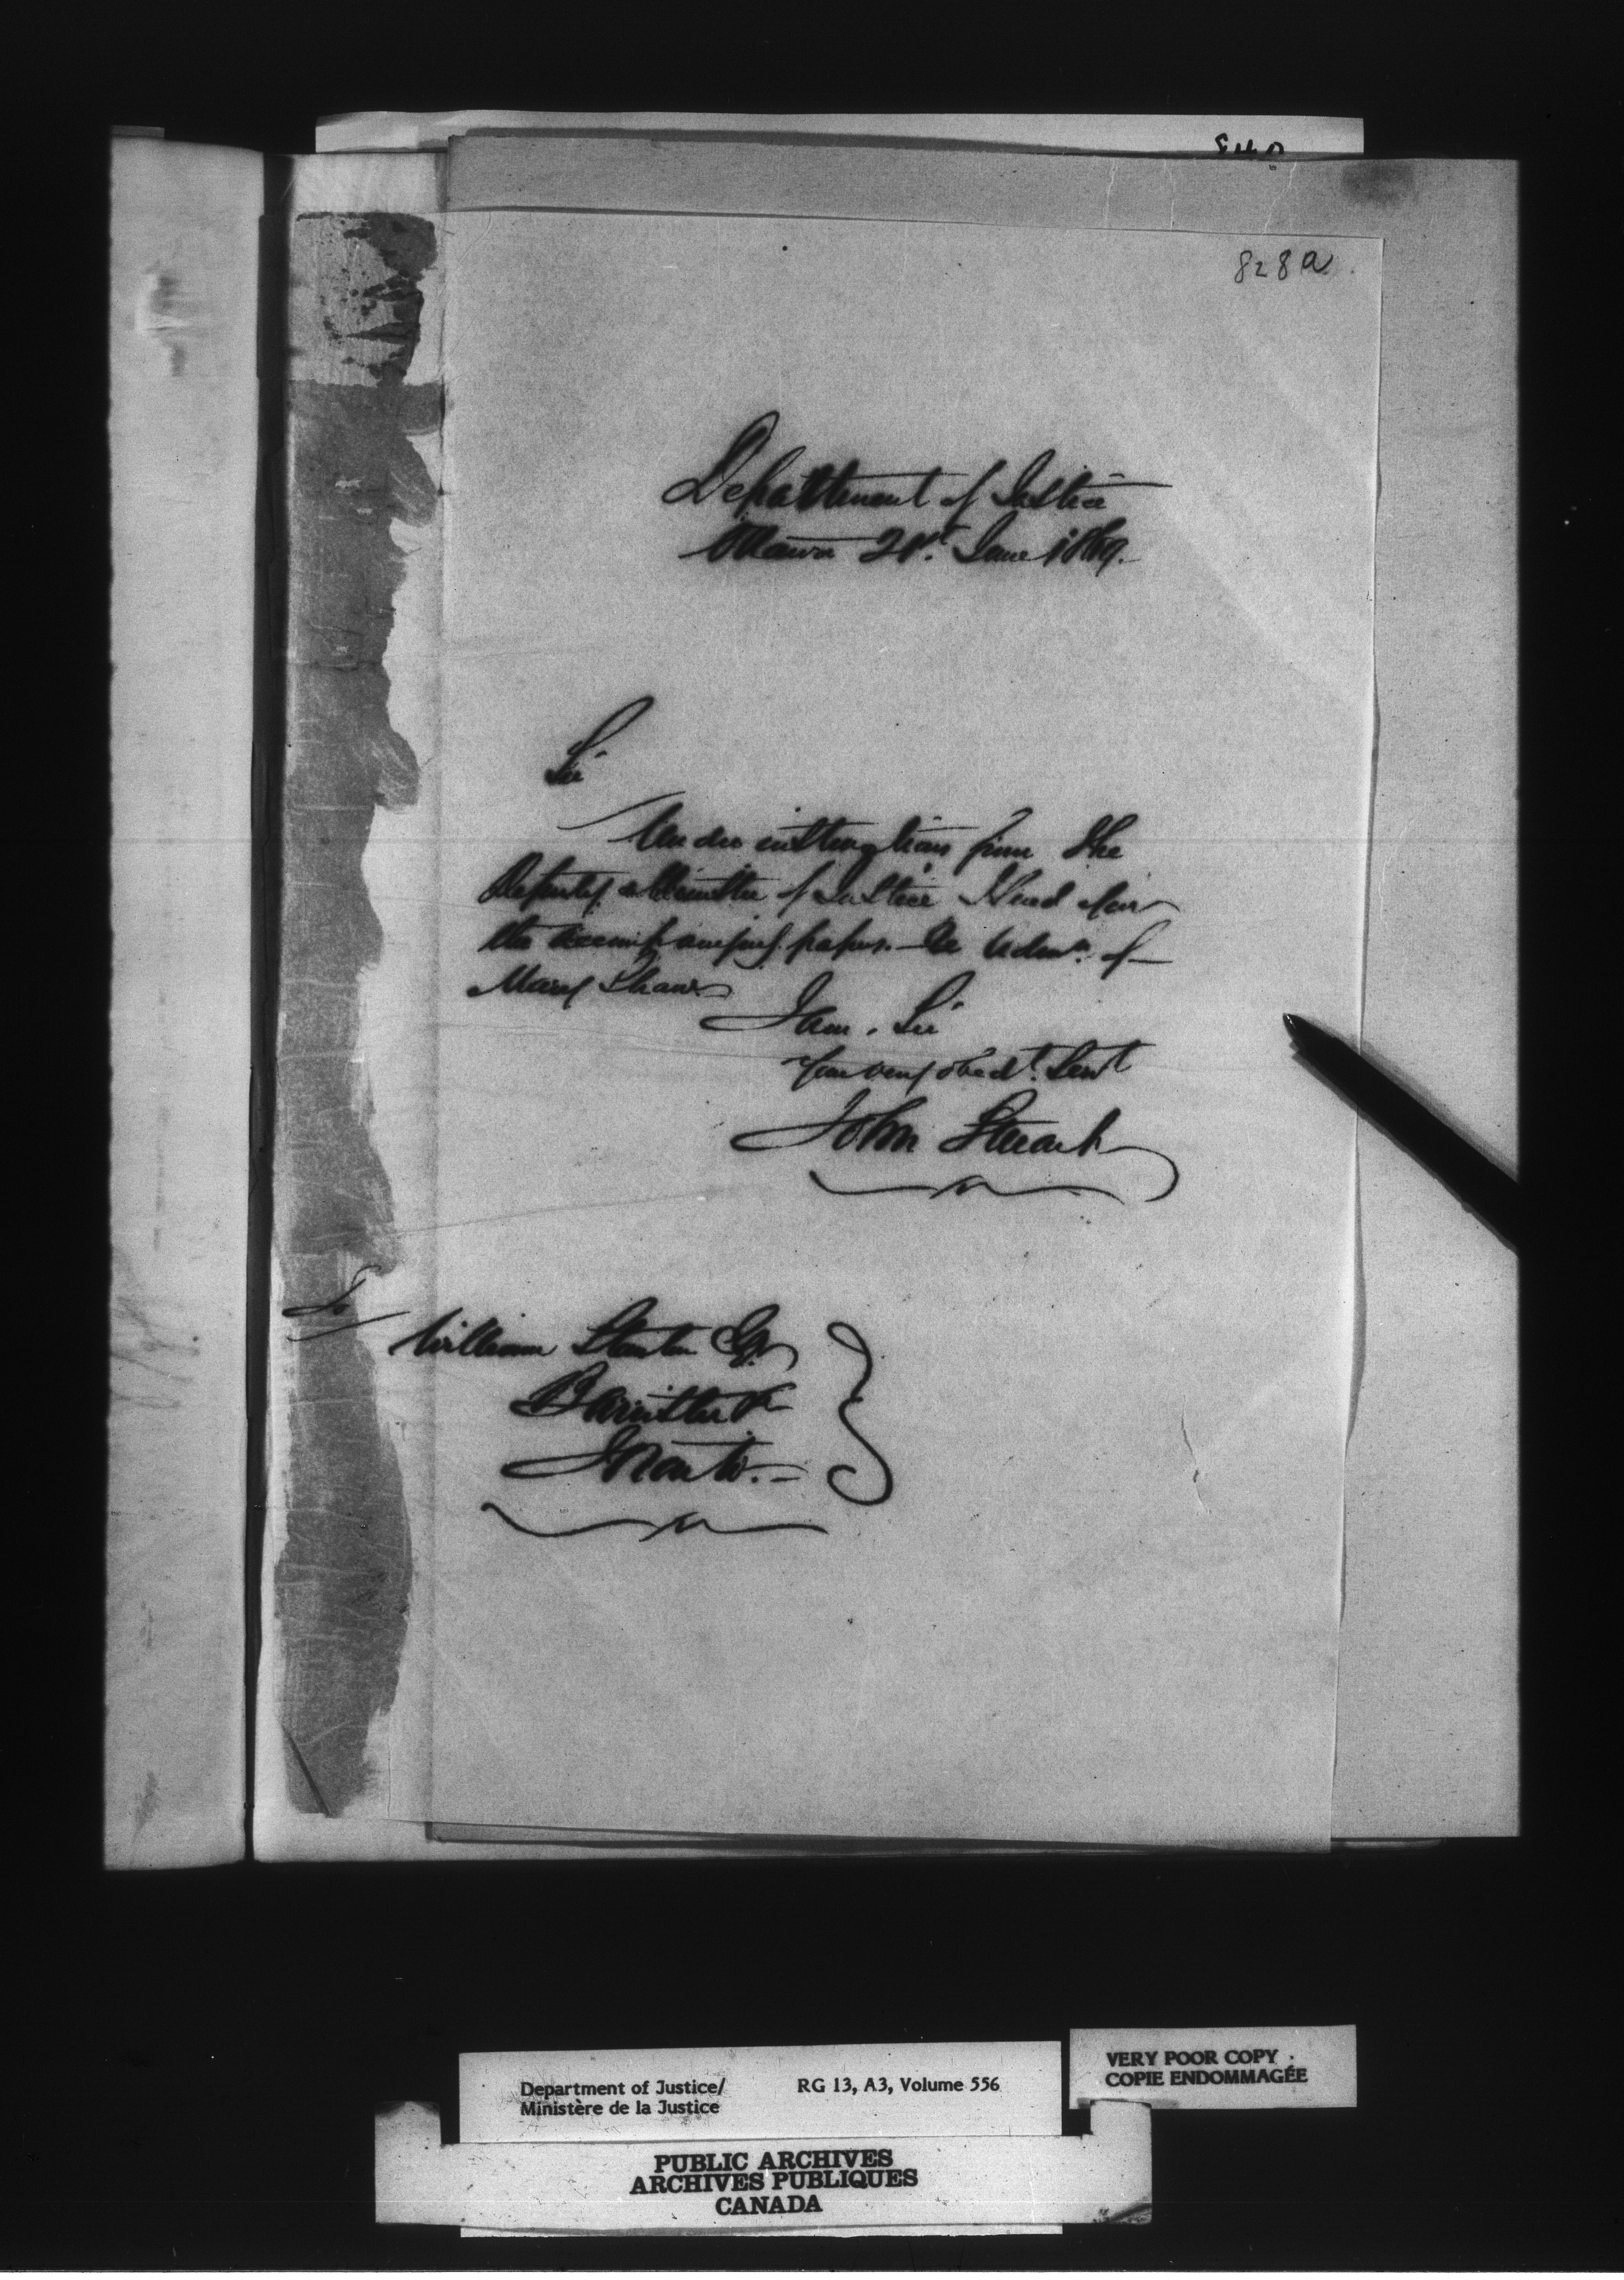 828a
Department of Justice
Ottawa 21st. June 1869.
Sir
Under instructions from the
Deputy Minister of Justice I send you
the accompanying papers. Re Admn. of
Mary Shaw
I am, Sir
Your very obedt. Servt
John Stuart
To
William Stanton Esqr
Barrister &c
Toronto.
Department of Justice/
Ministère de la Justice
RG 13, A3, Volume 556
VERY POOR COPY
COPIE ENDOMMAGÉE
PUBLIC ARCHIVES
ARCHIVES PUBLIQUES
CANADA